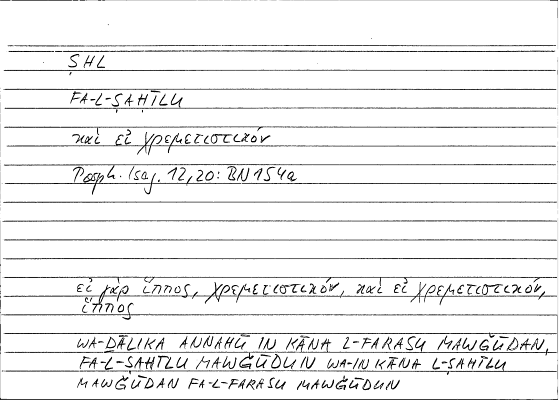 ṢHL
FA-L-ṢAHĪLU
καὶ εἰ χρεμετιστικόν
Porph. Isag. 12,20: BN 154a
εἰ γὰρ ἵππος, χρεμετιστικόν, καὶ εἰ χρεμετιστικόν,
ἵππος
WA-ḎĀLIKA ANNAHŪ IN KĀNA L-FARASU MAWǦŪDAN,
FA-L-ṢAHĪLU MAWǦŪDUN WA-IN KĀNA L-ṢAHĪLU
MAWǦŪDAN FA-L-FARASU MAWǦŪDUN